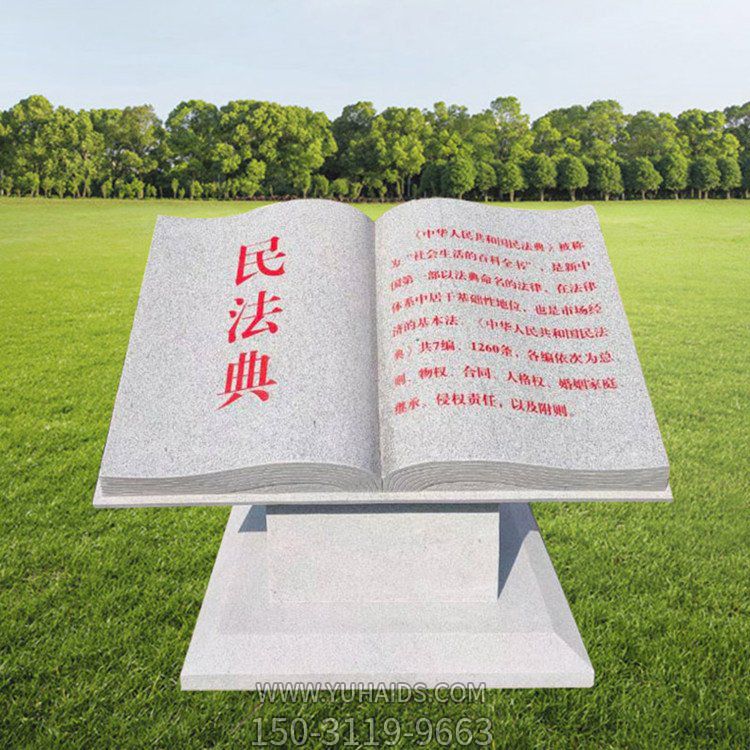 民法典
《中华人民共和国民法典》被称
为“社会生活的百科全书”，是新中
国第一部以法典命名的法律，在法律
体系中居于基础性地位，也是市场经
济的基本法。《中华人民共和国民法
典》共7编、1260条，各编依次为总
则、物权、合同、人格权、婚姻家庭
继承、侵权责任，以及附则。
WWW.YUHAIDS.COM
150-3119-9663